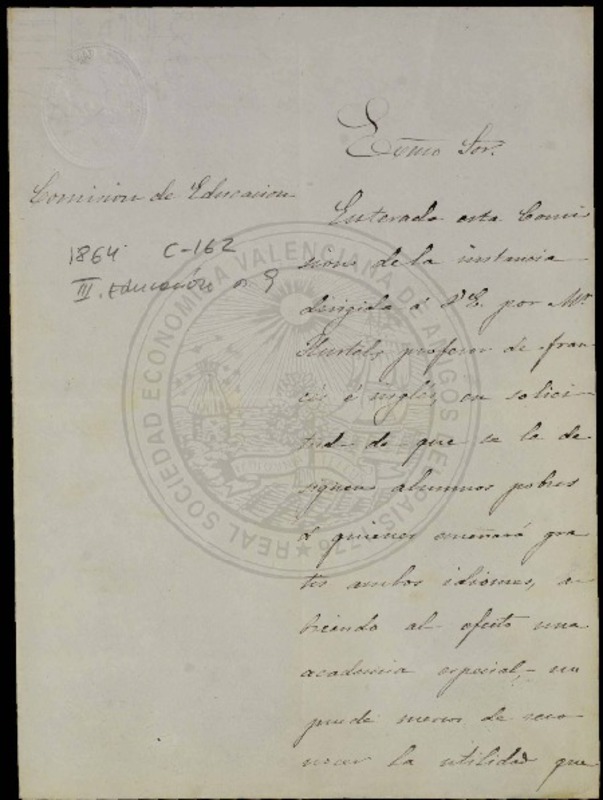 Excmo Sor.
Comision de Educacion
1864 C-162
III. Educación n. 9
Enterada esta Comi
sion de la instancia
dirigida á V.E. por Mr.
profesor de fran
cés é inglés, en solici-
tud de que se le de
signen alumnos pobres
á quienes enseñará gra
tis ambos idiomas, a-
briendo al efecto una
academia especial, no
puede menos de reco
nocer la utilidad que
REAL SOCIEDAD ECONOMICA VALENCIANA DE AMIGOS DEL PAIS 1776